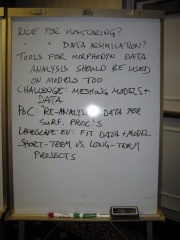 ROLE FOR MONITORING?
" " DATA ASSIMILATION?
TOOLS FOR MORPHODYN DATA
ANALYSIS SHOULD BE USED
ON MODELS TOO
CHALLENGE: MESHING MODELS +
DATA
POC: "RE-ANALYSIS" DATA FOR
SURF. PROC'S
LANDSCAPE EV: FIT DATA + MODEL
SHORT-TERM VS. LONG-TERM
PROJECTS